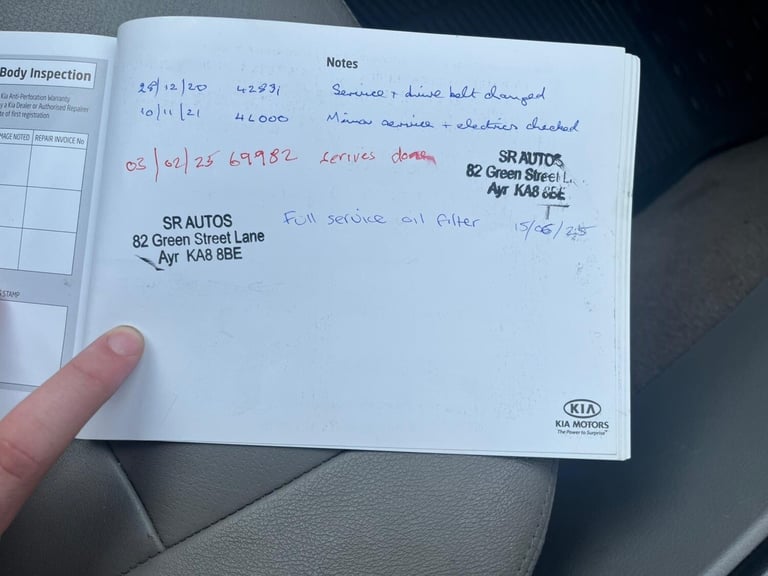 Body Inspection
Kia Anti-Perforation Warranty
y a Kia Dealer or Authorised Repairer
te of first registration
MAGE NOTED REPAIR INVOICE No
STAMP
Notes
28/12/20 42831 Service + drive belt changed
10/11/21 46000 Minor service + electrics checked
03/02/25 69982 serives done
SR AUTOS
82 Green Street L
Ayr KA8 8BE
SR AUTOS
82 Green Street Lane
Ayr KA8 8BE
Full service oil filter 15/06/25
KIA
KIA MOTORS
The Power to Surprise